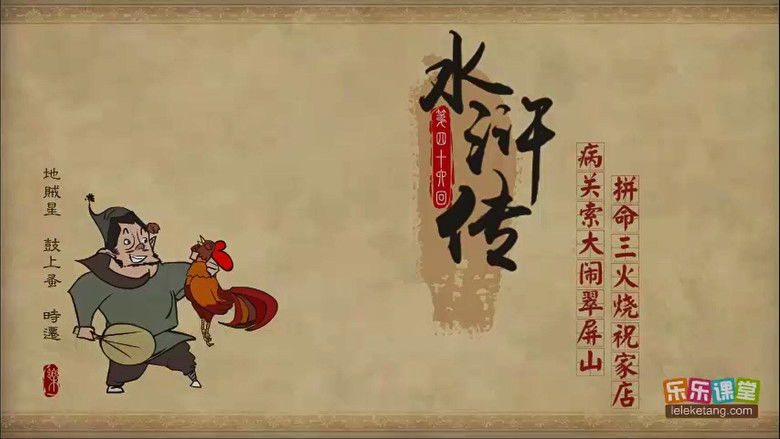 水浒传
第四十六回
病关索大闹翠屏山
拼命三火烧祝家店
地贼星 鼓上蚤 時遷
乐乐课堂
leleketang.com